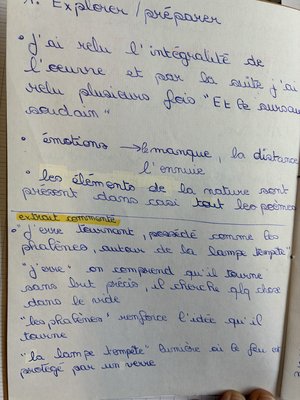 1. Explorer / préparer
• J'ai relu l'intégralité de
l'œuvre et par la suite j'ai
relu plusieurs fois "Et ce sursau
soudain"
• émotions → le manque, la distance
l'ennuie
• les éléments de la nature sont
présent dans casi tout les poèmes
extrait commenté
• "J'erre tournant, possédé comme les
phalènes, autour de la lampe tempête"
"j'erre" on comprend qu'il tourne
sans but précis, il cherche qlq chose
dans le vide
"les phalènes" renforce l'idée qu'il
tourne
"la lampe tempête" lumière où le feu est
protégé par un verre